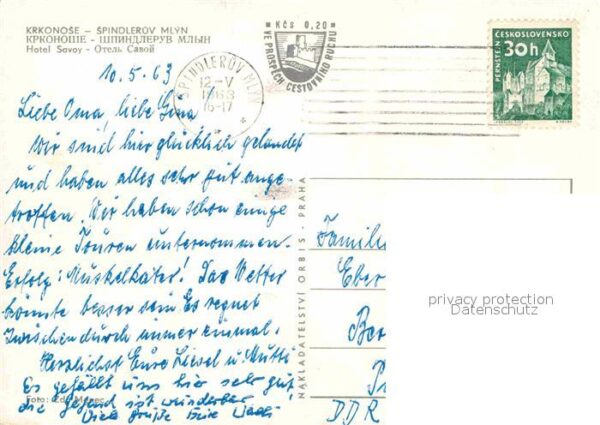 KRKONOŠE – ŠPINDLERŮV MLÝN
КРКОНОШЕ – ШПИНДЛЕРУВ МЛЫН
Hotel Savoy – Отель Савой
10.5.63
Liebe Oma, liebe Gina
Wir sind hier glücklich gelandet
und haben alles sehr gut ange-
troffen. Wir haben schon einige
kleine Touren unternommen.
Erfolg: Muskelkater! Das Wetter
könnte besser sein Es regnet
zwischendurch immer einmal.
Herzlichst Eure Liesel u. Mutti
Es gefällt uns hier sehr gut,
die Gegend ist wunderbar
Viele Grüße Eure
Foto:
ŠPINDLERŮV MLÝN
12.-V
1963
16-17
Kčs 0,20
VE PROSPĚCH CESTOVNÍHO RUCHU
ČESKOSLOVENSKO
30h
PERNŠTEJN
NAKLADATELSTVÍ ORBIS · PRAHA
Famili
Eber
Be
P
DDR
privacy protection
Datenschutz